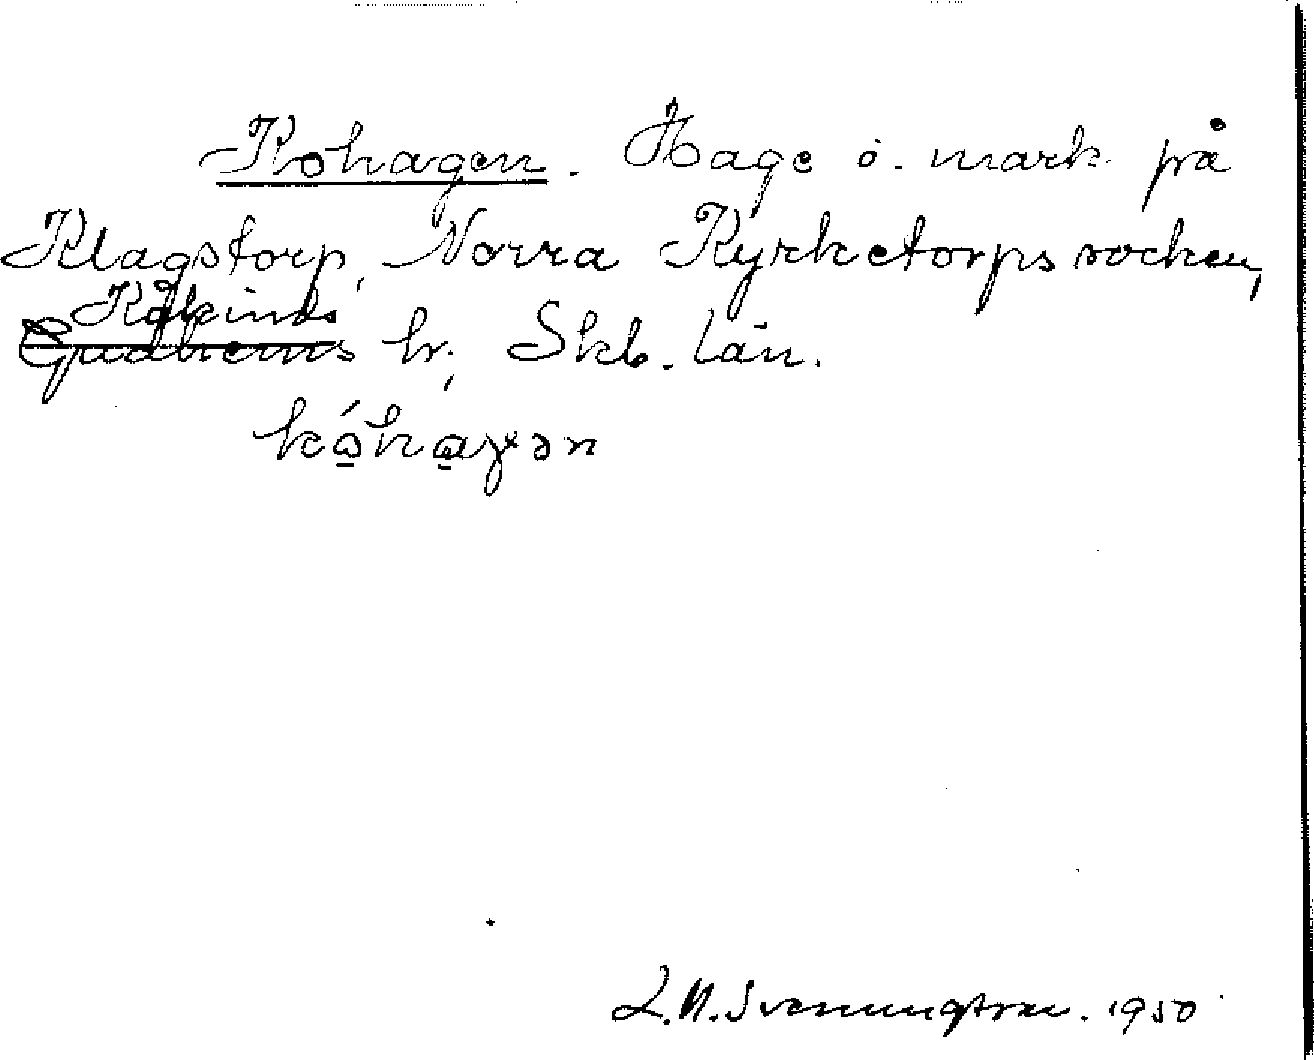 Kohagen. Hage o. mark på
Klagstorp, Norra Kyrketorps socken,
Kåkinds
Gudhems hr, Skb. län.
kóhagən
1950